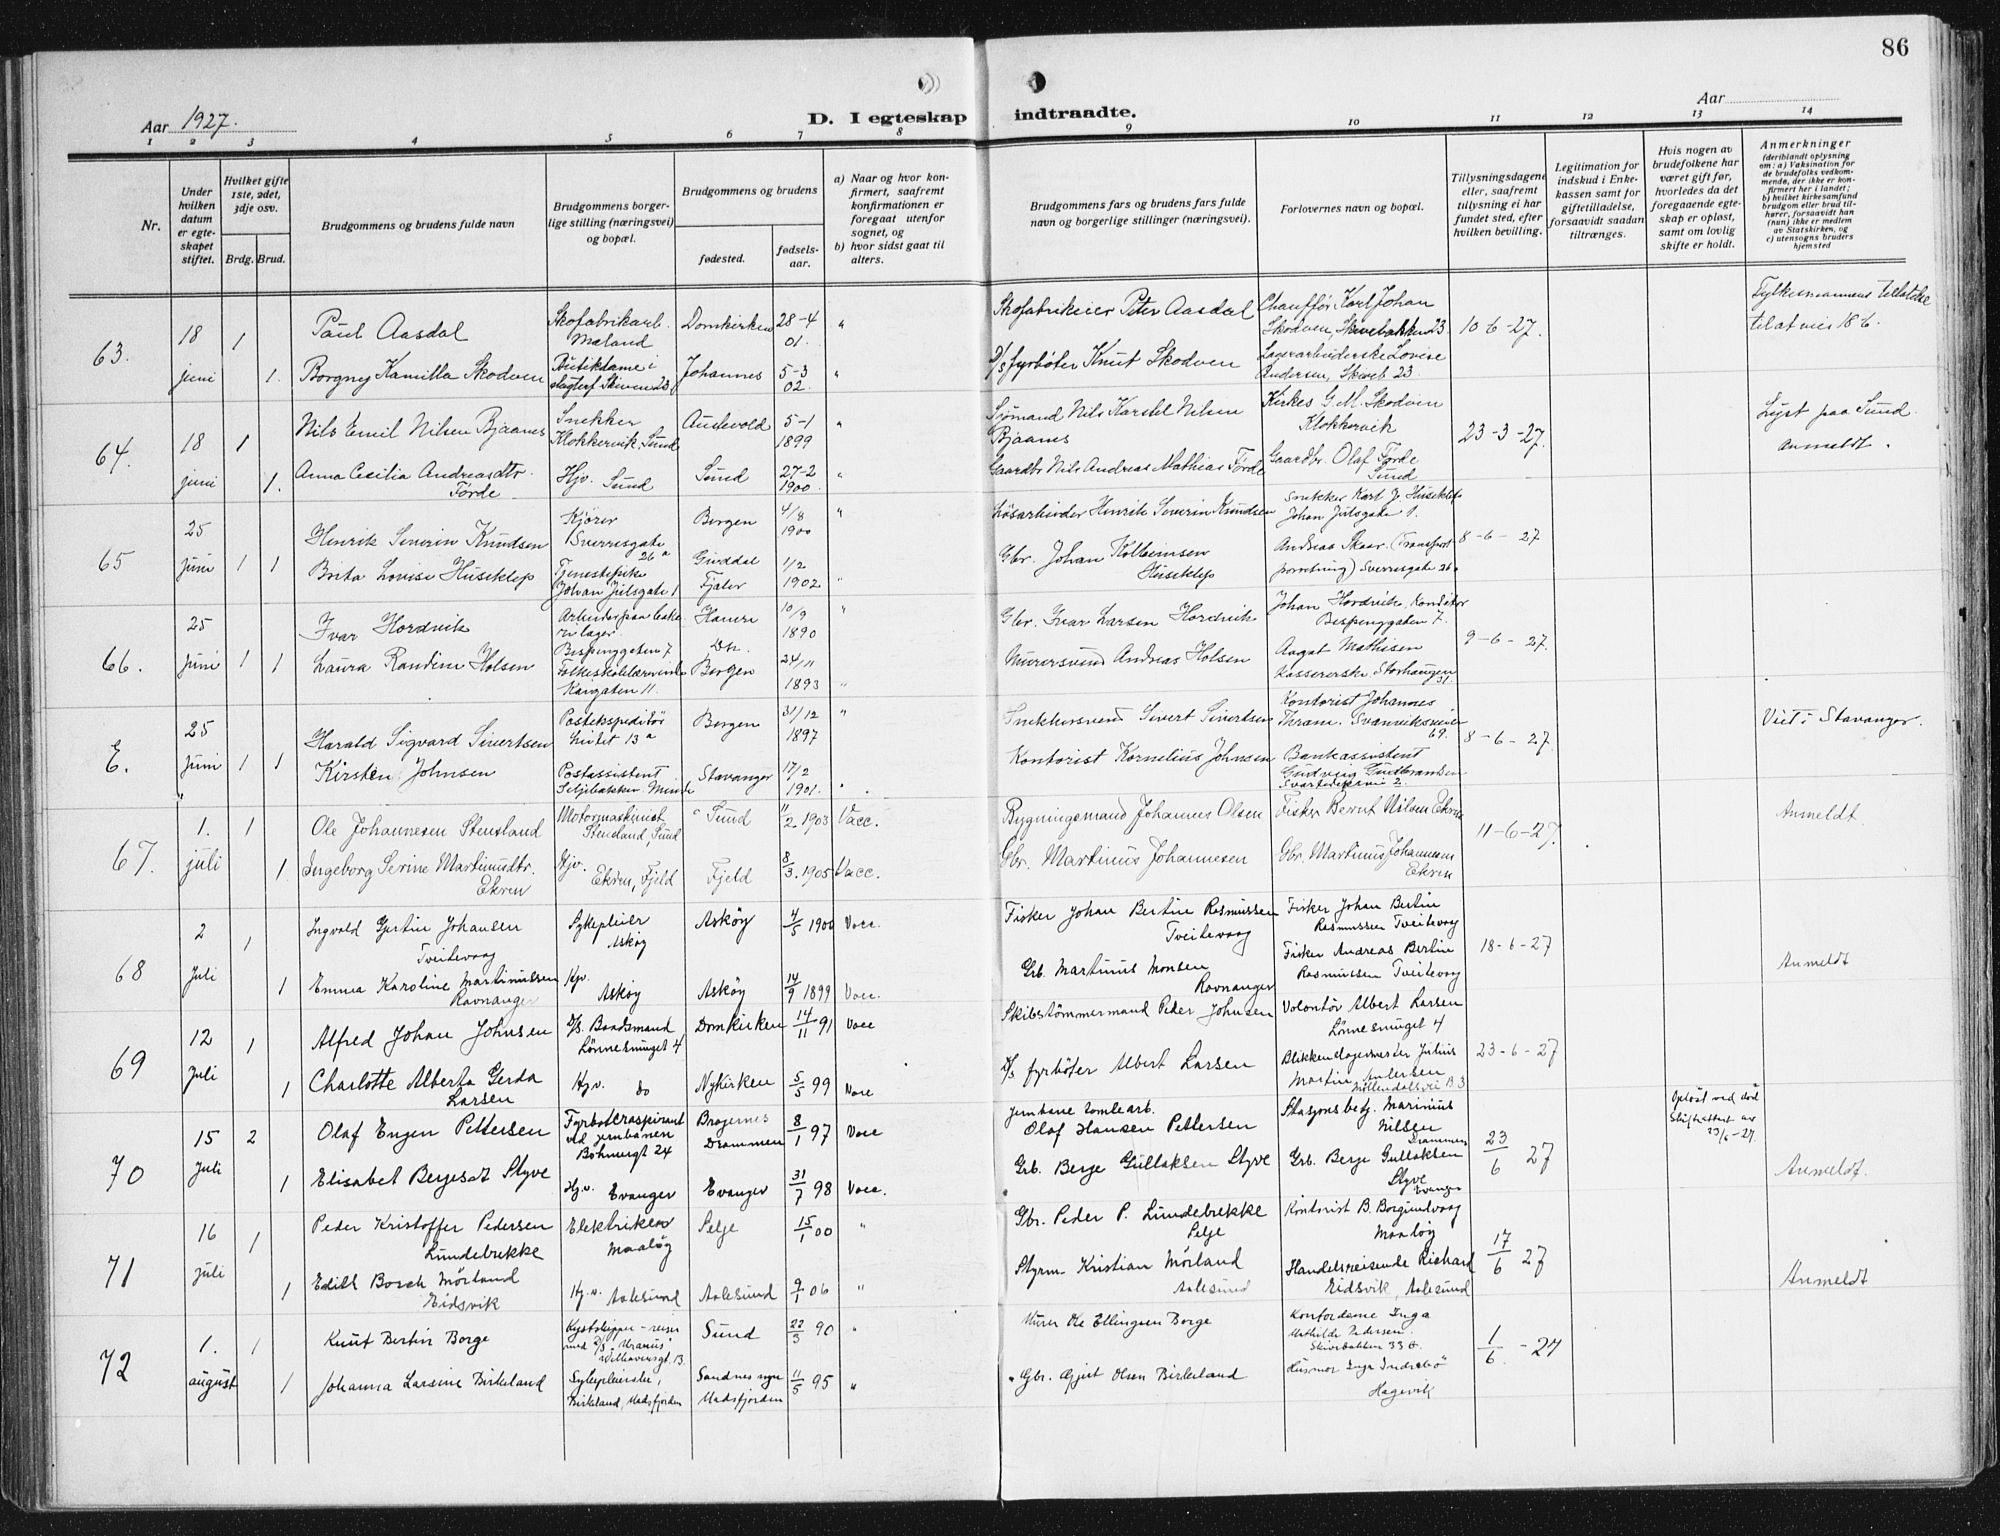 86
Aar 1927.
D. I egteskap indtraadte.
Aar
1 2 3 4 5 6 7 8 9 10 11 12 13 14
Nr.
Under hvilken datum er egteskapet stiftet.
Hvilket gifte 1ste, 2det, 3dje osv.
Brdg. Brud.
Brudgommens og brudens fulde navn
Brudgommens borgerlige stilling (næringsvei) og bopæl.
Brudgommens og brudens
fødested.
fødselsaar.
a) Naar og hvor konfirmert, saafremt konfirmationen er foregaat utenfor sognet, og
b) hvor sidst gaat til alters.
Brudgommens fars og brudens fars fulde navn og borgerlige stillinger (næringsvei).
Forlovernes navn og bopæl.
Tillysningsdagene eller, saafremt tillysning ei har fundet sted, efter hvilken bevilling.
Legitimation for indskud i Enkekassen samt for giftetilladelse, forsaavidt saadan tiltrænges.
Hvis nogen av brudefolkene har været gift før, hvorledes da det foregaaende egteskap er opløst, samt om lovlig skifte er holdt.
Anmerkninger
(deriblandt oplysning om: a) Vaksination for de brudefolks vedkommende, der ikke er konfirmert her i landet; b) hvilket kirkesamfund brudgom eller brud tilhører, forsaavidt han (hun) ikke er medlem av Statskirken, og c) utensogns bruders hjemsted
63. 18 juni 1 Paul Aasdal Skofabrikarb. Maland Domkirken 28-4 01. " Skofabrikeier Peter Aasdal Chauffør Karl Johan Skodven, Skivebakken 23 10-6-27. Fylkesmannens tillatelse til at vies 18/6.
1. Borgny Kamilla Skodven Butikdame i Skiven 23 Johannes 5-3 02. " D/s fyrbøter Knut Skodven Lagerarbeiderske Lovise Andersen, Skiveb 23.
64. 18 juni 1 Nils Emil Nilsen Bjaanes Snekker Klokkervik, Sund Austevold 5-1 1899 " Sjømand Nils Karstel Nilsen Bjaanes Kirkes. G. M. Skodven Klokkervik 23-3-27. Lyst paa Sund. Anmeldt.
1. Anna Cecilia Andreasdtr. Førde Hjv. Sund Sund 27-2 1900. " Gaardbr. Nils Andreas Mathias Førde Gaardbr. Olaf Førde Sund
65 25 juni 1 Henrik Severin Knudsen Kjører Sverresgate 26a Bergen 4/8 1900 " Løsarbeider Henrik Severin Knudsen Snekker Karl J. Huseklep Johan Julsgate 1. 8-6-27
1 Brita Lovise Huseklep Tjenestepike Johan Julsgate 1 Guddal Fjaler 1/2 1902 " Gbr. Johan Kolbeinsen Huseklep Andreas Skaar (Transport forretning) Sverresgate 26a
66. 25 juni 1 Ivar Hordvik Arbeider paa bakeri lager Bispenggaten 7 Hamre 10/9 1890 " Gbr. Ivar Larsen Hordvik Johan Hordvik, Konditor Bispenggaten 7. 9-6-27.
1 Laura Randine Holsen Folkeskolelærerinde Kaigaten 11. Dk. Bergen 24/11 1893 " Murersvend Andreas Holsen Aagot Mathisen kassererske Storhaugen 31.
E. 25 juni 1 Harald Sigvard Sivertsen Postekspeditør 13a Bergen 31/12 1897 " Snekkersvend Sivert Sivertsen Kontorist Johannes Thram. Svanviksveien 69. 8-6-27. Viet i Stavanger.
1 Kirsten Johnsen Postassistent Seljebakken. Minde Stavanger 17/2 1901. " Kontorist Kornelius Johnsen Bankassistent Gudveig Gudbrandsen Svartediksvei 2.
67. 1. juli 1 Ole Johannesen Stensland Motormaskinist Stensland, Sund Sund 11/2 1903 Vacc. Bygningsmand Johannes Olsen Fisker Bernt Nilsen Ekren 11-6-27. Anmeldt.
1 Ingeborg Serine Martinusdtr. Ekren Hjv. Ekren, Fjeld Fjeld 8/3. 1905 Vacc. Gbr. Martinus Johannesen Gbr. Martinus Johannesen Ekren
68 2 Juli 1 Ingvald Gjertin Johansen Tveitevaag Sykepleier Askøy Askøy 4/5 1900 Vacc. Fisker Johan Bertin Rasmussen Tveitevaag Fisker Johan Bertin Rasmussen Tveitevaag 18-6-27 Anmeldt
1 Emma Karoline Martinussen Ravnanger Hjv. Askøy Askøy 14/9 1899 Vacc. Grb. Martinus Monsen Ravnanger Fisker Andreas Bertin Rasmussen Tveitevaag
69 12 Juli 1 Alfred Johan Johnsen D/s. Baadsmand Lønnesmuget 4 Domkirken 14/11 91 Vacc Skibstømmermand Peder Johnsen Volontør Albert Larsen Lønnesmuget 4 23-6-27
1 Charlotte Alberta Gerda Larsen Hj.v. do Nykirken 5/5 99 Vacc D/s fyrbøter Albert Larsen Blikkenslagermester Julius Martin Andersen Møllendalsvei B 3
70 15 Juli 2 Olaf Engen Pettersen Fyrbøteraspirant ved jernbanen Bøhmergt 24 Bragernes Drammen 8/1 97 Vacc Jernbane tomtearb. Olaf Hansen Pettersen Stasjonsbetj. Marinius Nilsen Drammen 23/6 27 Opløst ved død Skifteattest av 23/6-27.
1 Elisabet Bergesdt Styve Hj.v. Evanger Evanger 31/7 98 Vacc. Grb. Berge Gullaksen Styve Grb. Berge Gullaksen Styve Evanger Anmeldt.
71 16 Juli 1 Peder Kristoffer Pedersen Lundebrekke Elektriker Maaløy Selje 15/1 00 " Gbr. Peder P. Lundebrekke Selje Kontorist B. Borgundvaag Maaløy 17/6 27
1 Edith Bosch Mörland Eidsvik Hj.v. Aalesund Aalesund 9/1 06 " Styrm. Kristian Mörland Aalesund Handelsreisende Richard Eidsvik, Aalesund Anmeldt
72 1. august 1 Knut Bertin Borge Kystskipper - reiser med D/S "Uranus" 13. Sund 22/3 90 " Murer Ole Ellingsen Borge Inga Mathilde Pedersen. Skivebakken 33 A. 1/6. -27
1 Johanna Larsine Birkeland Sykepleierske, Birkeland, Madsfjorden Sandnes sogn Madsfjorden 11/5 95 " Gbr. Gjert Olsen Birkeland Husmor Inga Indrebö Hagevik